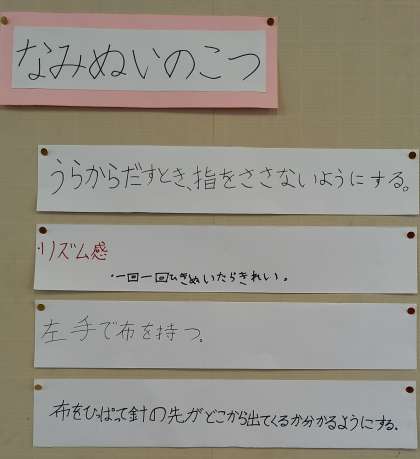 なみぬいのこつ
うらからだすとき、指をささないようにする。
・リズム感
・一回一回ひきぬいたらきれい。
左手で布を持つ。
布をひっぱって針の先がどこから出てくるか分かるようにする。